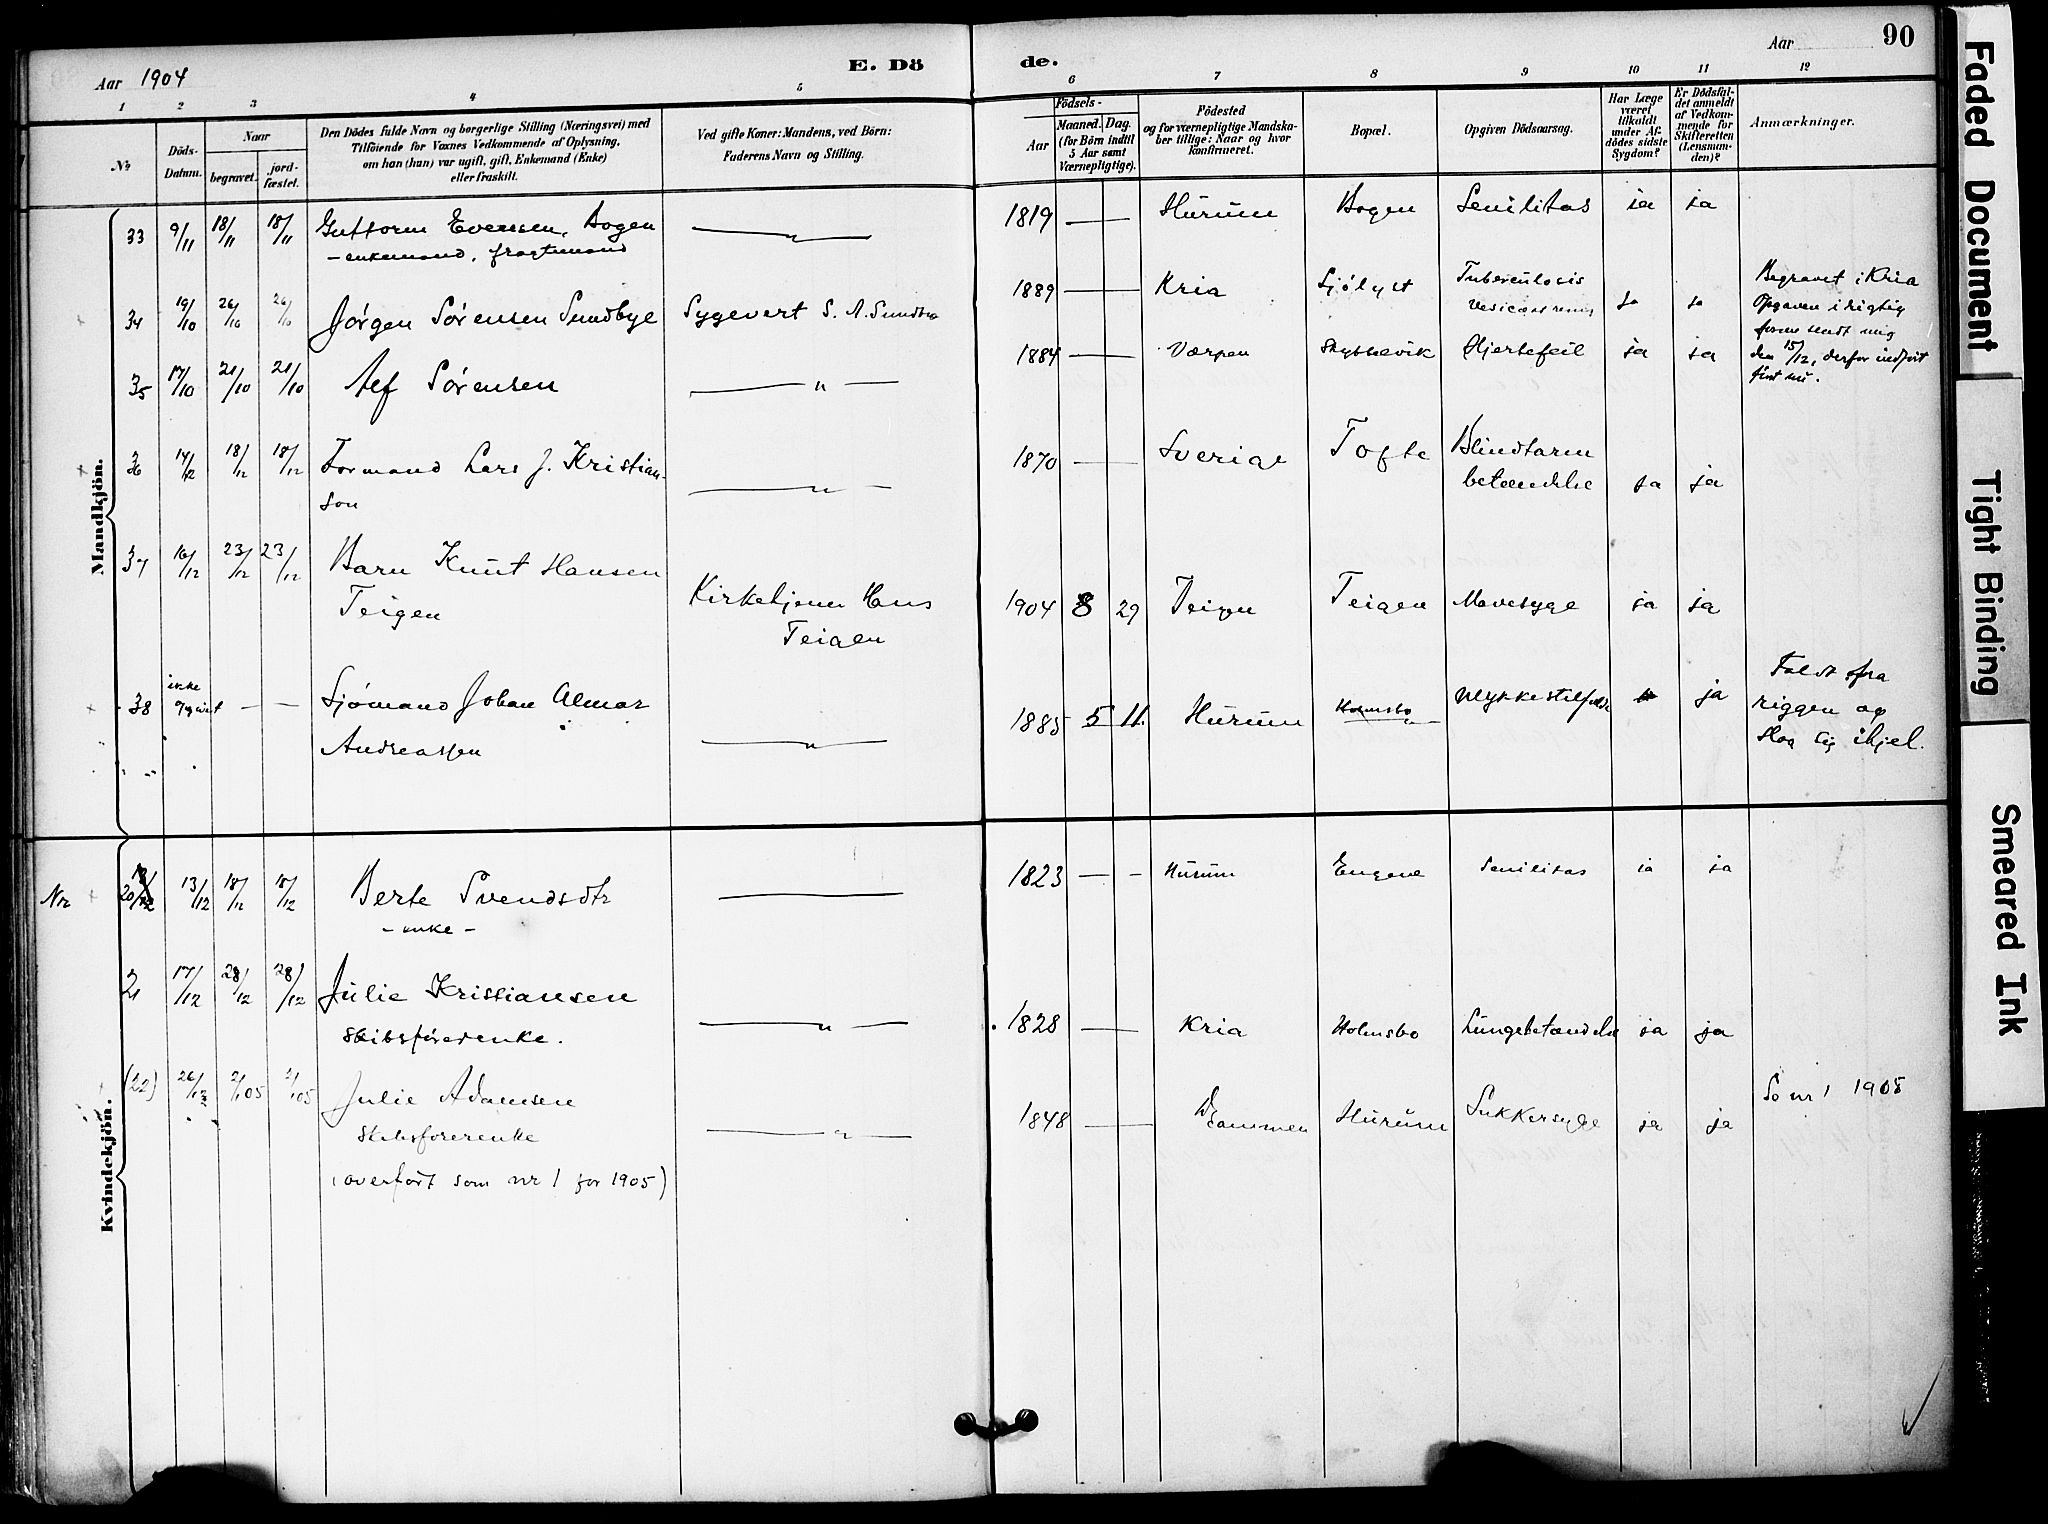 Aar 1904
E. Dö
de.
Aar
90
1 2 3 4 5 6 7 8 9 10 11 12
No
Döds-Datum.
Naar
begravet.
jord-fæstet.
Den Dödes fulde Navn og borgerlige Stilling (Næringsvei) med
Tilföiende for Voxnes Vedkommende af Oplysning,
om han (hun) var ugift, gift, Enkemand (Enke)
eller fraskilt.
Ved gifte Koner: Mandens, ved Börn:
Faderens Navn og Stilling.
Födsels-
Aar
Maaned. Dag.
(for Börn indtil
5 Aar samt
Værnepligtige).
Födested
og for værnepligtige Mandska-
ber tillige: Naar og hvor
konfirmeret.
Bopæl.
Opgiven Dödsaarsag.
Har Læge
været
tilkaldt
under Af-
dödes sidste
Sygdom?
Er Dödsfal-
det anmeldt
af Vedkom-
mende for
Skifteretten
(Lensman-
den)?
Anmærkninger.
Mandkjön.
33 9/11 18/11 18/11 Guttorm Evensen, Bogen — " — 1819 — Hurum Bogen Senilitas ja ja
- enkemand, fragtemand
34 19/10 26/10 26/10 Jørgen Sørensen Sundbye Sygevert S. A. Sundbye 1889 — Kria Sjölyst Tuberculosis ja ja Begravet i Kria
Opgaven i rigtig
form sendt mig
den 15/12, derfor indført
først nu.
35 17/10 21/10 21/10 Alf Sørensen — " — 1884 — Værpen Hjertefeil ja ja
36 14/12 18/12 18/12 Formand Lars J. Kristian-
son — " — 1870 — Sverige Tofte Blindtarm
betændelse ja ja
37 16/12 23/12 23/12 Barn Knut Hansen
Teigen Kirketjener Hans
Teigen 1904 8 29 Teigen Teigen Mavesyge ja ja
38 ikke
opgivet — — Sjömand Johan Almar
Andreassen — " — 1885 5 11. Hurum Holmsbo Ulykkestilfælde ja Faldt fra
riggen og
slog sig ihjel.
Kvindekjön.
Nr 20 13/12 18/12 18/12 Berte Svendsdtr — 1823 — - Hurum Engene Senilitas ja ja
- enke -
21 17/12 28/12 28/12 Julie Kristiansen
Skibsförerenke. — " — 1828 — Kria Holmsbo Lungebetændelse ja ja
(22) 26/12 2/1 05 2/1 05 Julie Adamsen
Skibsförerenke — " — 1848 — Drammen Hurum Sukkersyge ja ja Se nr 1 1905
(overført som nr 1 for 1905)
Faded Document
Tight Binding
Smeared Ink